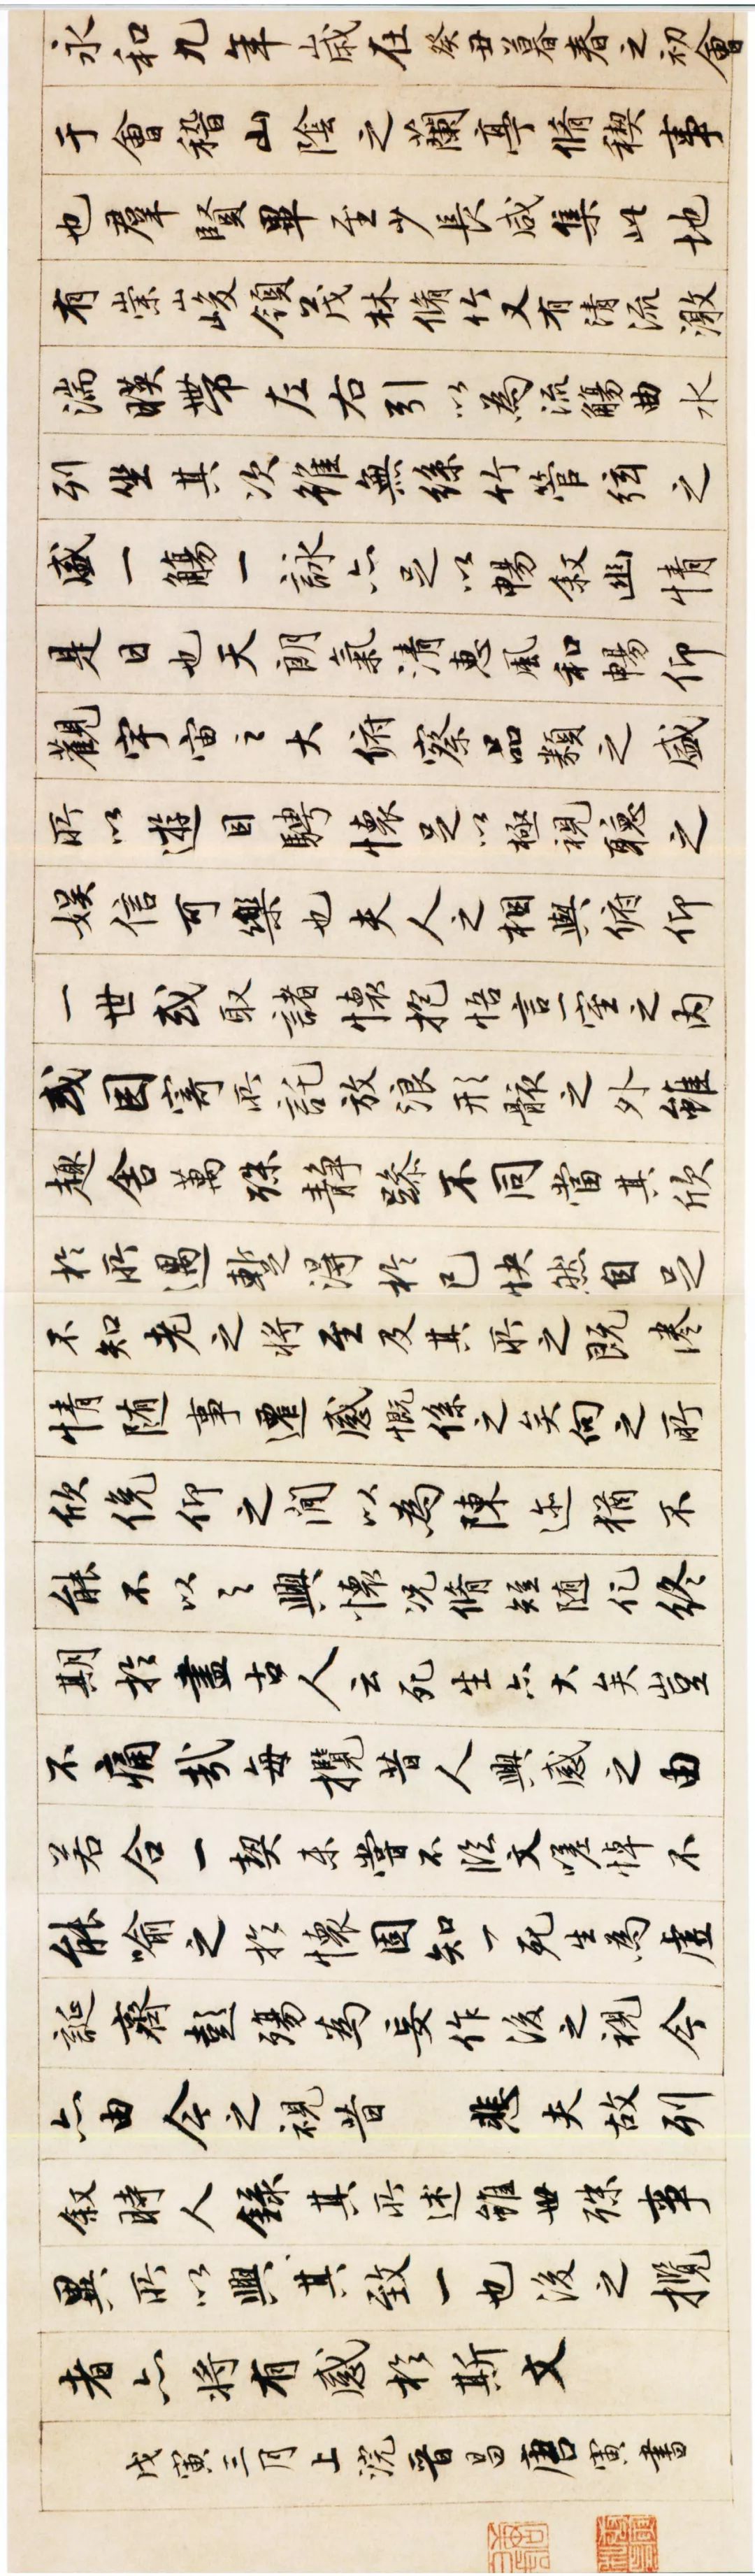 永和九年歲在癸丑暮春之初會
于會稽山陰之蘭亭脩稧事
也羣賢畢至少長咸集此地
有崇山峻領茂林脩竹又有清流激
湍暎帶左右引以為流觴曲水
列坐其次雖無絲竹管弦之
盛一觴一詠亦足以暢敘幽情
是日也天朗氣清惠風和暢仰
觀宇宙之大俯察品類之盛
所以遊目騁懷足以極視聽之
娛信可樂也夫人之相與俯仰
一世或取諸懷抱悟言一室之內
或因寄所託放浪形骸之外雖
趣舍萬殊靜躁不同當其欣
於所遇蹔得於己快然自足
不知老之將至及其所之既惓
情隨事遷感慨係之矣向之所
欣俛仰之閒以為陳迹猶不
能不以之興懷況脩短隨化終
期於盡古人云死生亦大矣豈
不痛哉每攬昔人興感之由
若合一契未嘗不臨文嗟悼不
能喻之於懷固知一死生為虛
誕齊彭殤為妄作後之視今
亦由今之視昔 悲夫故列
敘時人錄其所述雖世殊事
異所以興其致一也後之攬
者亦將有感於斯文
戊寅三月上浣晉昌唐寅書